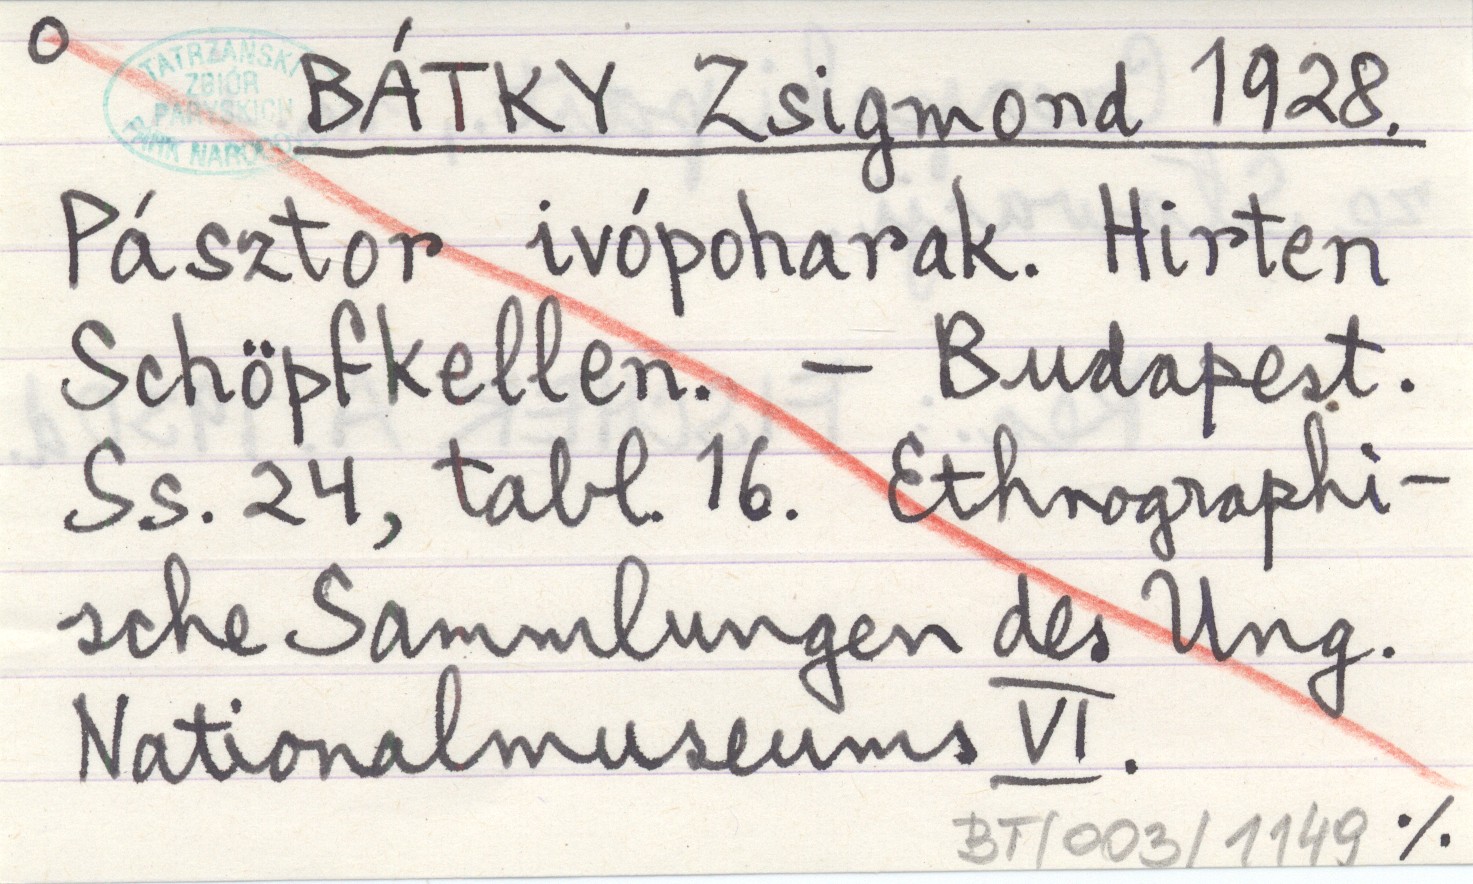 O
TATRZAŃSKI
ZBIÓR
PARYSKICH
BÁTKY Zsigmond 1928.
Pásztor ivópoharak. Hirten
Schöpfkellen. – Budapest.
Ss. 24, tabl. 16. Ethnographi-
sche Sammlungen des Ung.
Nationalmuseums VI.
BT/003/1149 ·/.